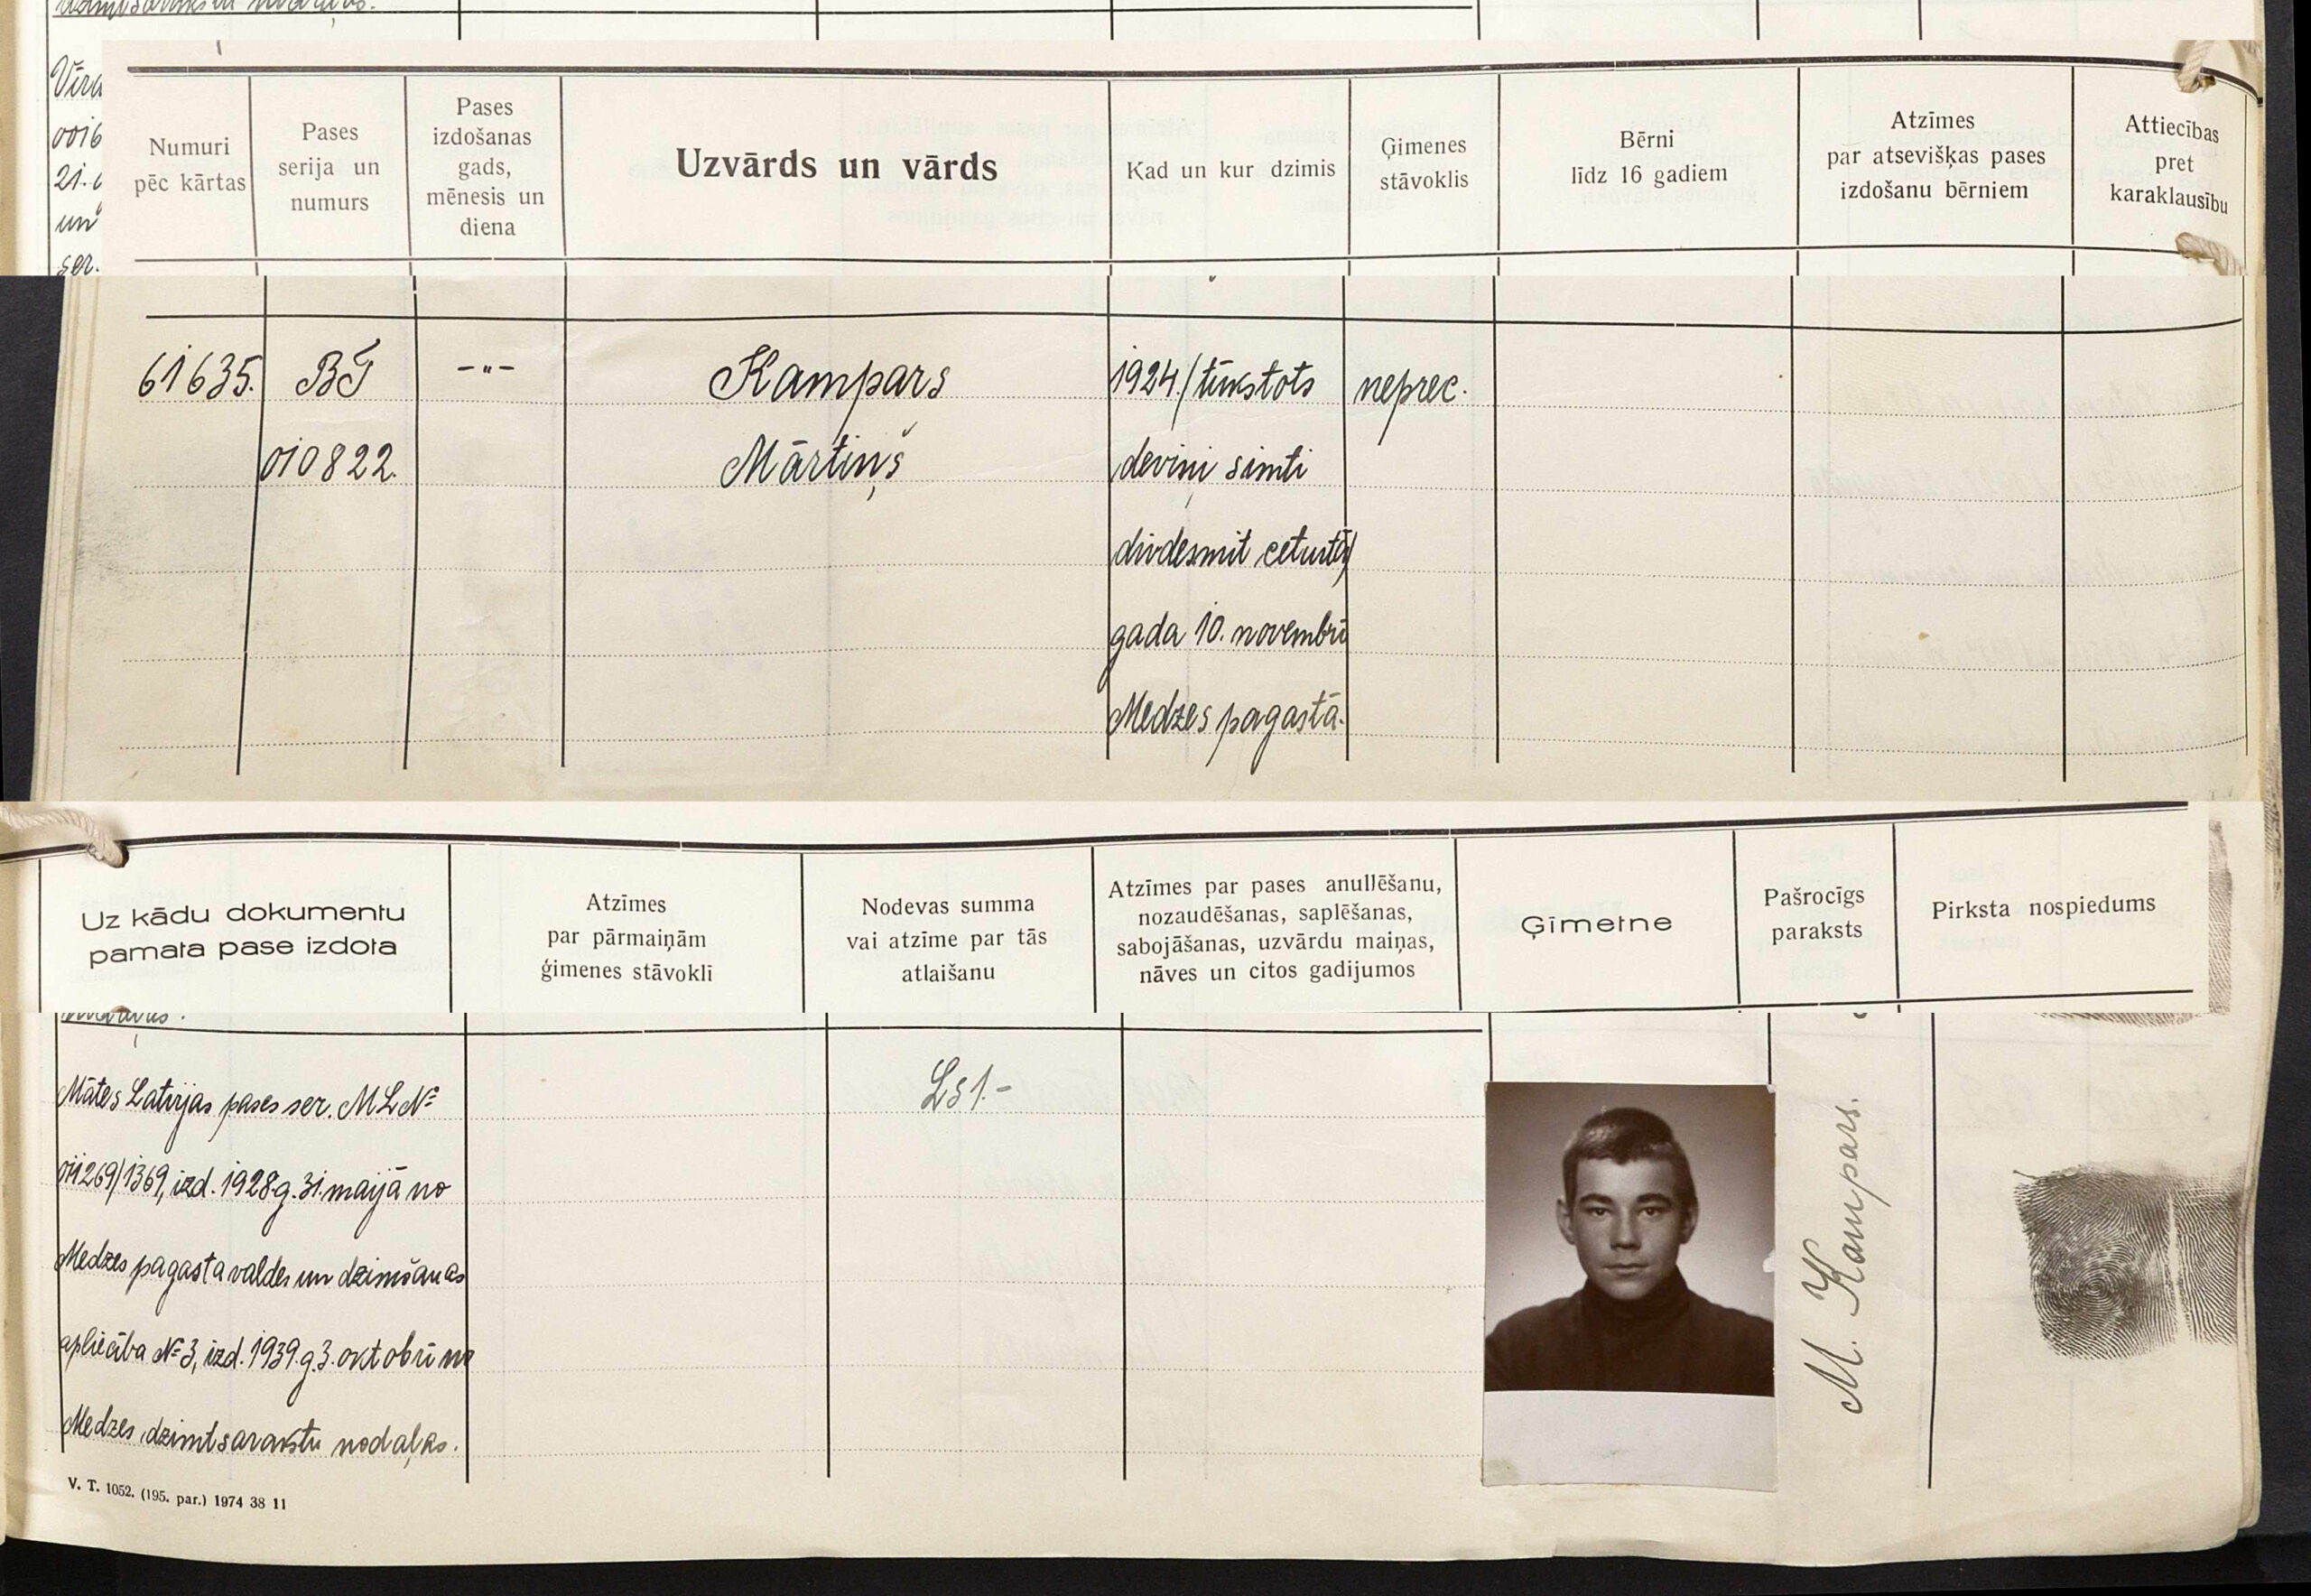 Numuri
pēc kārtas
Pases
serija un
numurs
Pases
izdošanas
gads,
mēnesis un
diena
Uzvārds un vārds
Kad un kur dzimis
Ģimenes
stāvoklis
Bērni
līdz 16 gadiem
Atzīmes
par atsevišķas pases
izdošanu bērniem
Attiecības
pret
karaklausību
0016
21.
un
ser.
61635.
BT
010822.
-"-
Kampars
Mārtiņš
1924./tūkstots
deviņi simti
divdesmit ceturtā/
gada 10. novembrī
Medzes pagastā.
neprec.
Uz kādu dokumentu
pamata pase izdota
Atzīmes
par pārmaiņām
ģimenes stāvoklī
Nodevas summa
vai atzīme par tās
atlaišanu
Atzīmes par pases anullēšanu,
nozaudēšanas, saplēšanas,
sabojāšanas, uzvārdu maiņas,
nāves un citos gadijumos
Ģīmetne
Pašrocīgs
paraksts
Pirksta nospiedums
Mātes Latvijas pases ser. ML №
011269/1369, izd. 1928.g. 31. maijā no
Medzes pagasta valdes un dzimšanas
apliecība № 3, izd. 1939.g. 3. oktobrī no
Medzes dzimtsarakstu nodaļas.
Ls 1.-
M. Kampars.
V. T. 1052. (195. par.) 1974 38 11